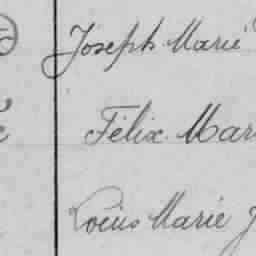 Joseph Marie
Félix Mar
Louis Marie J